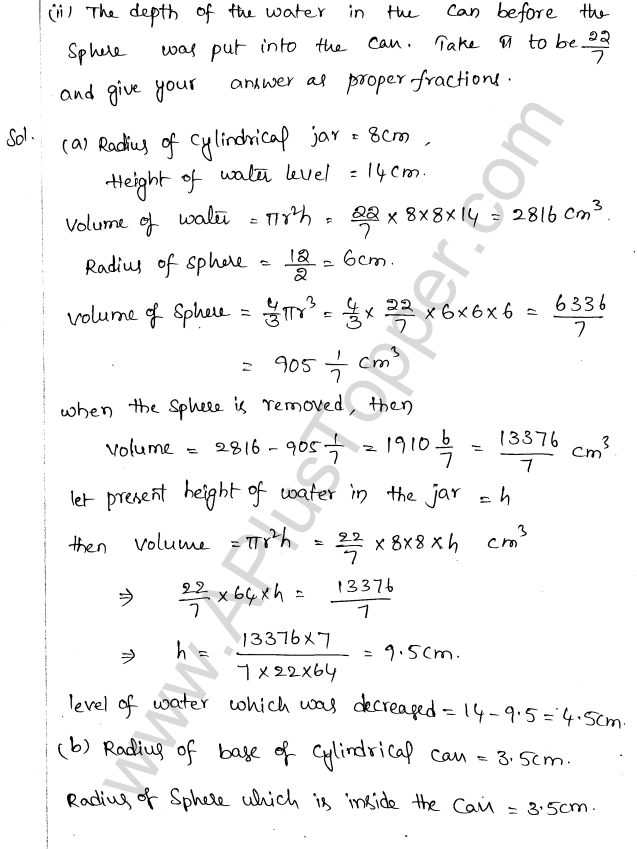 (ii) The depth of the water in the can before the
Sphere was put into the can. Take π to be 22/7
and give your answer as proper fractions.
Sol. (a) Radius of cylindrical jar = 8cm,
Height of water level = 14cm.
Volume of water = πr²h = 22/7 × 8×8×14 = 2816 cm³.
Radius of sphere = 12/2 = 6cm.
Volume of Sphere = 4/3 πr³ = 4/3 × 22/7 × 6×6×6 = 6336/7
= 905 1/7 cm³
when the sphere is removed, then
Volume = 2816 - 905 1/7 = 1910 6/7 = 13376/7 cm³
let present height of water in the jar = h
then volume = πr²h = 22/7 × 8×8×h cm³
⇒ 22/7 × 64 × h = 13376/7
⇒ h = 13376×7 / 7×22×64 = 9.5cm.
level of water which was decreased = 14 - 9.5 = 4.5cm.
(b) Radius of base of cylindrical can = 3.5cm.
Radius of Sphere which is inside the can = 3.5cm.
www.APlusTopper.com